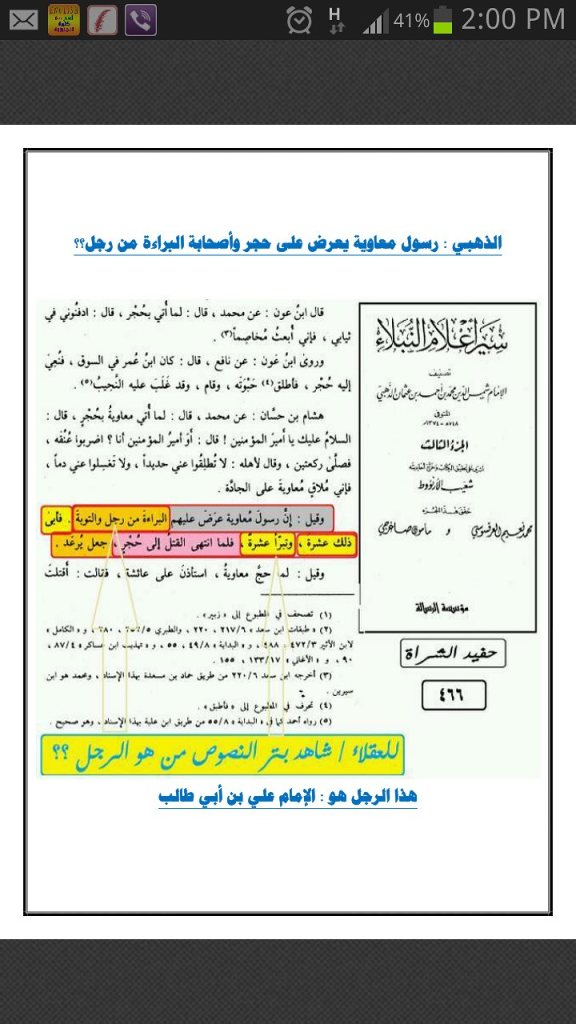 H
41%
2:00 PM
الذهبي : رسول معاوية يعرض على حجر وأصحابة البراءة من رجل؟؟
سير أعلام النبلاء
تصنيف
الإمام شمس الدين محمد بن أحمد بن عثمان الذهبي
المتوفى
٧٤٨هـ - ١٣٧٤م
الجزء الثالث
شعيب الأرنؤوط
حقق هذا الجزء
محمد نعيم العرقسوسي و مأمون صاغرجي
مؤسسة الرسالة
حفيد الشراة
٤٦٦
قال ابنُ عون : عن محمد ، قال : لما أُتي بحُجْر ، قال : ادفنُوني في
ثيابي ، فإني أُبعثُ مُخاصِماً(٣) .
وروى ابنُ عَون : عن نافع ، قال : كان ابنُ عُمر في السوق ، فنُعِيَ
إليه حُجْر ، فأطلق(٤) حَبْوَته ، وقام ، وقد غَلَبَ عليه النَّحِيبُ(٥) .
هشام بن حسَّان : عن محمد ، قال : لما أُتي معاويةُ بحُجْرٍ ، قال :
السلامُ عليك يا أميرَ المؤمنين ! قال : أوَ أميرُ المؤمنين أنا ؟ اضربوا عُنُقَه ،
فصلَّى ركعتين ، وقال لأهله : لا تُطلِقُوا عني حديداً ، ولا تَغسِلوا عني دماً ،
فإني مُلاقٍ مُعاويةَ على الجادَّة .
وقيل : إنَّ رسولَ مُعاوية عَرَضَ عليهم البراءةَ من رجلٍ والتوبةَ . فأبى
ذلك عشرة ، وتبرَّأ عشرةٌ ، فلما انتهى القتلُ إلى حُجْرٍ ، جعل يُرعَد .
وقيل : لما حجَّ معاويةُ ، استأذنَ على عائشة ، فقالت : أقتلتَ
(١) تصحف في المطبوع إلى « زبير» .
(٢) « طبقات ابن سعد » ٢١٧/٦ ، ٢٢٠ ، والطبري
لابن الأثير ٤٧٢/٣ ، ٤٨٨ ، و « البداية » ٤٩/٨ ، ٥٥ ، و « تهذيب ابن عساكر » ٨٧/٤ ،
٩٠ ، و « الأغاني » ١٣٣/١٧ ، ١٥٥ .
(٣) أخرجه ابن سعد ٢٢٠/٦ من طريق حماد بن مسعدة بهذا الإسناد ، ومحمد هو ابن
سيرين .
(٤) تحرف في المطبوع إلى « فأطبق » .
(٥) رواه أحمد كما في « البداية » ٥٥/٨ من طريق ابن علية بهذا الإسناد ، وهو صحيح .
للعقلاء / شاهد بتر النصوص من هو الرجل ؟؟
هذا الرجل هو : الإمام علي بن أبي طالب